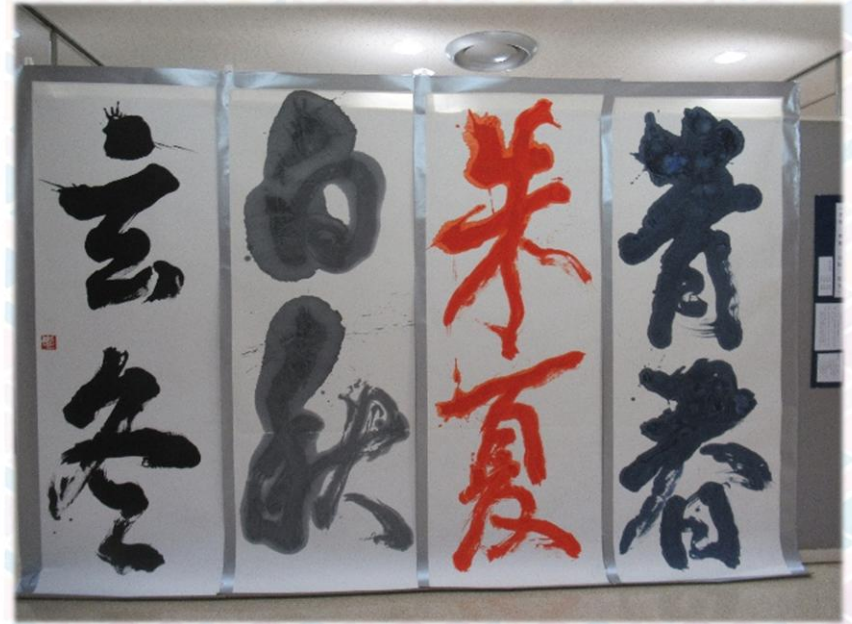 青春
朱夏
白秋
玄冬